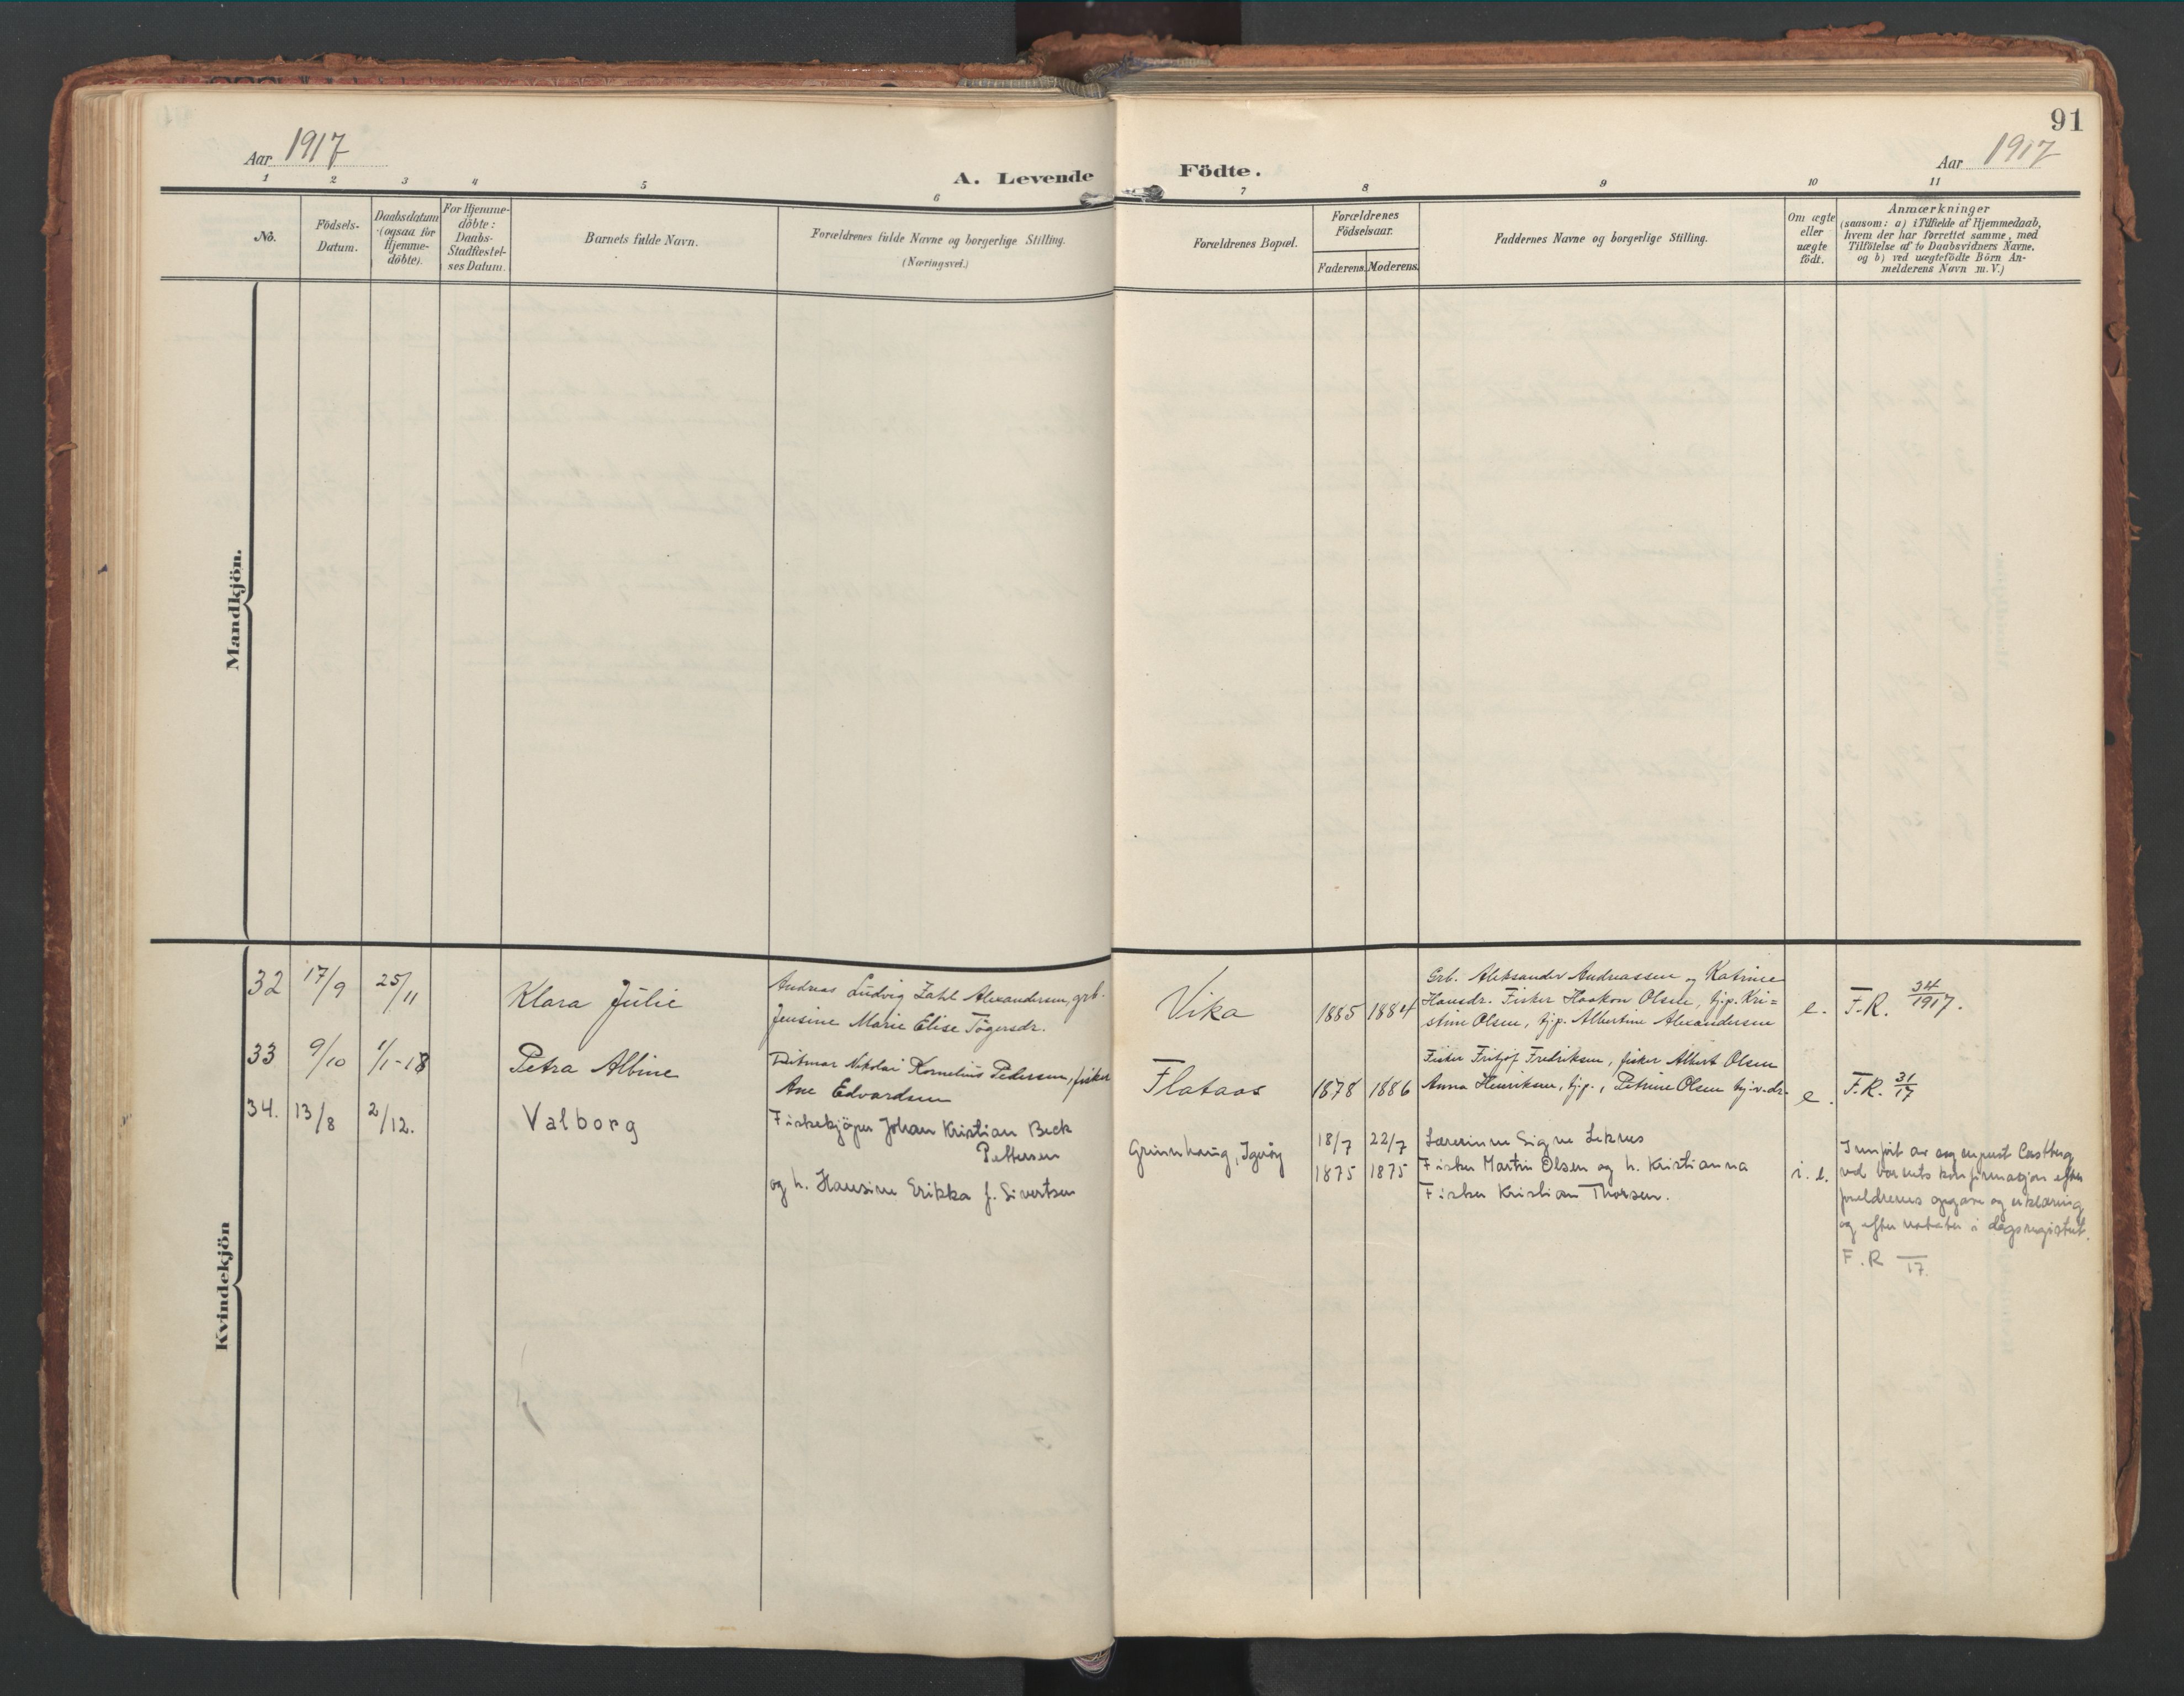 91
Aar 1917
Aar 1917
A. Levende Födte.
1 2 3 4 5 6 7 8 9 10 11
No.
Födsels-
Datum.
Daabsdatum
(ogsaa for
Hjemme-
döbte).
For Hjemme-
döbte:
Daabs-
Stadfæstel-
ses Datum.
Barnets fulde Navn.
Forældrenes fulde Navne og borgerlige Stilling.
(Næringsvei.)
Forældrenes Bopæl.
Forældrenes
Födselsaar.
Faderens. Moderens.
Faddernes Navne og borgerlige Stilling.
Om ægte
eller
uægte
födt.
Anmærkninger
(saasom: a) i Tilfælde af Hjemmedaab,
hvem der har forrettet samme, med
Tilföielse af to Daabsvidners Navne,
og b) ved uægtefödte Börn An-
melderens Navn m.V.)
Mandkjön.
Kvindekjön
32 17/9 25/11
Klara Julie
Andreas Ludvig Zahl Alexandersen, grb.
Jensine Marie Elise Tögersdr.
Vika
1885 1884
Grb. Aleksander Andreassen og Katrine
Hansdr. Fisker Haakon Olsen, tj.p. Kri=
stine Olsen, tj.p. Albertine Alexandersen
e.
F.R. 34/1917.
33 9/10 1/1-18
Petra Albine
Ditmar Nikolai Kornelius Pedersen, fisker
Ane Edvardsen
Flataas
1878 1886
Fisker Fritjof Fredriksen, fisker Albert Olsen
Anna Henriksen, tj.p., Petrine Olsen
e.
F.R. 31/17
34. 13/8 2/12.
Valborg
Fiskekjöper Johan Kristian Beck
Pettersen
og h. Hansine Erikka f. Sivertsen
Grünnhaug, Igeröy
18/7 22/7
1875 1875
Lærerinne Signe Leknes
Fisker Martin Olsen og h. Kristianna
Fisker Kristian Thorsen.
i. e.
Innfört av sogneprest Castberg
ved barnets konfirmasjon efter
foreldrenes opgave og erklæring
og efter notater i dagsregistret.
F.R /17.